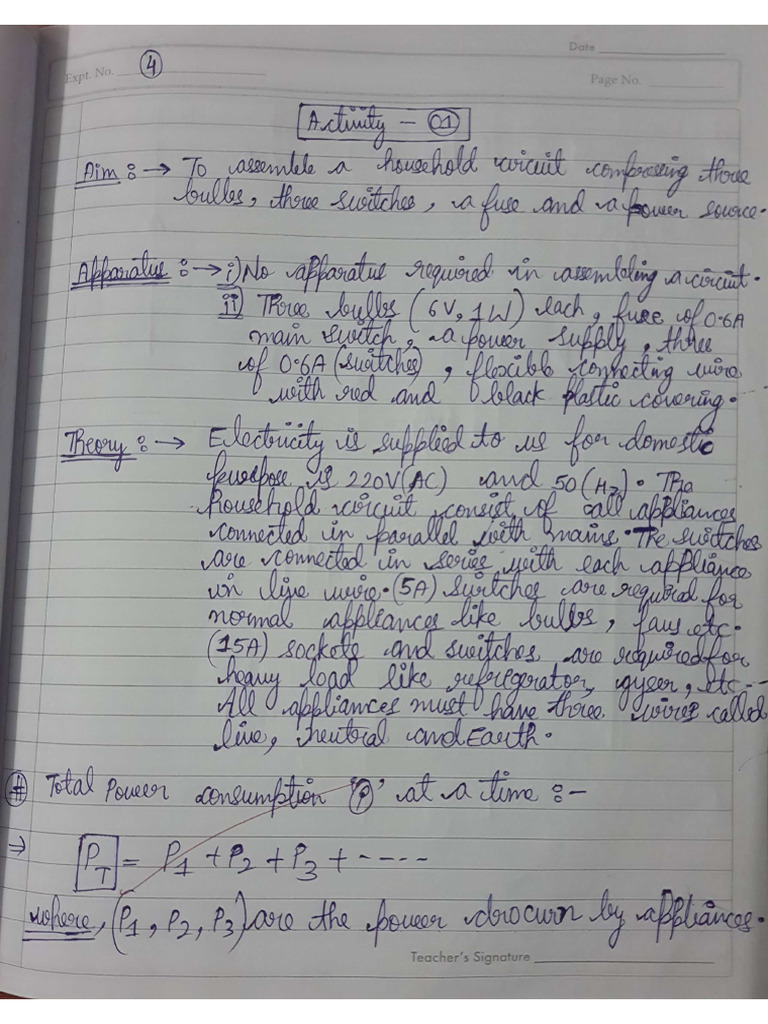 Date
Expt. No. 4
Page No.
Activity - 01
Aim :→ To assemble a household circuit comprosing three
bulbs, three switches, a fuse and a power source.
Apparatus :→ i) No apparatus required in assembling a circuit.
ii) Three bulbs (6V, 1W) each, fuse of 0.6A
main switch, a power supply, three
of 0.6A (switches), flexible connecting wire
with red and black plastic covering.
Theory :→ Electricity is supplied to us for domestic
purpose is 220V(AC) and 50(Hz). The
household circuit consist of all appliances
connected in parallel with mains. The switches
are connected in series with each appliance
in live wire. (5A) switches are required for
normal appliances like bulbs, fans etc.
(15A) sockets and switches are required for
heavy load like refregerator, gyser, etc--
All appliances must have three wires called
live, neutral and Earth.
# Total Power consumption 'P' at a time :-
⇒ PT = P1 + P2 + P3 + ----
where, (P1, P2, P3) are the power drocwn by appliances.
Teacher's Signature